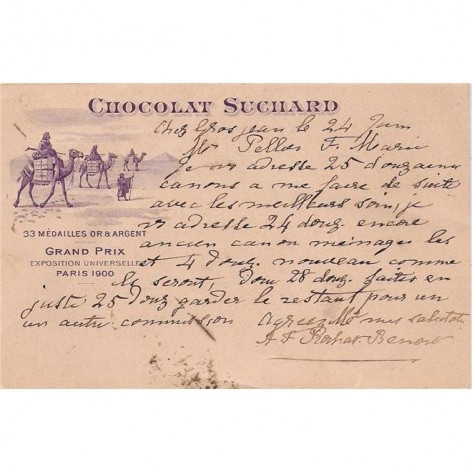 CHOCOLAT SUCHARD
33 MÉDAILLES OR & ARGENT
GRAND PRIX
EXPOSITION UNIVERSELLE
PARIS 1900
Chez Grosjean le 24 Juin
Mr Pellos F.
Je vs adresse 25 douzaines
canons a me faire de suite
avec les meilleurs soin, je
vs adresse 24 douz. encore
ancien canon ménages les
et 4 douz. nouveau comme
ils seront, Dom 28 douz. faites en
juste 25 douz garder le restant pour un
un autre commission Agréez Mr mes salutat.
A F Rochat-Benoit